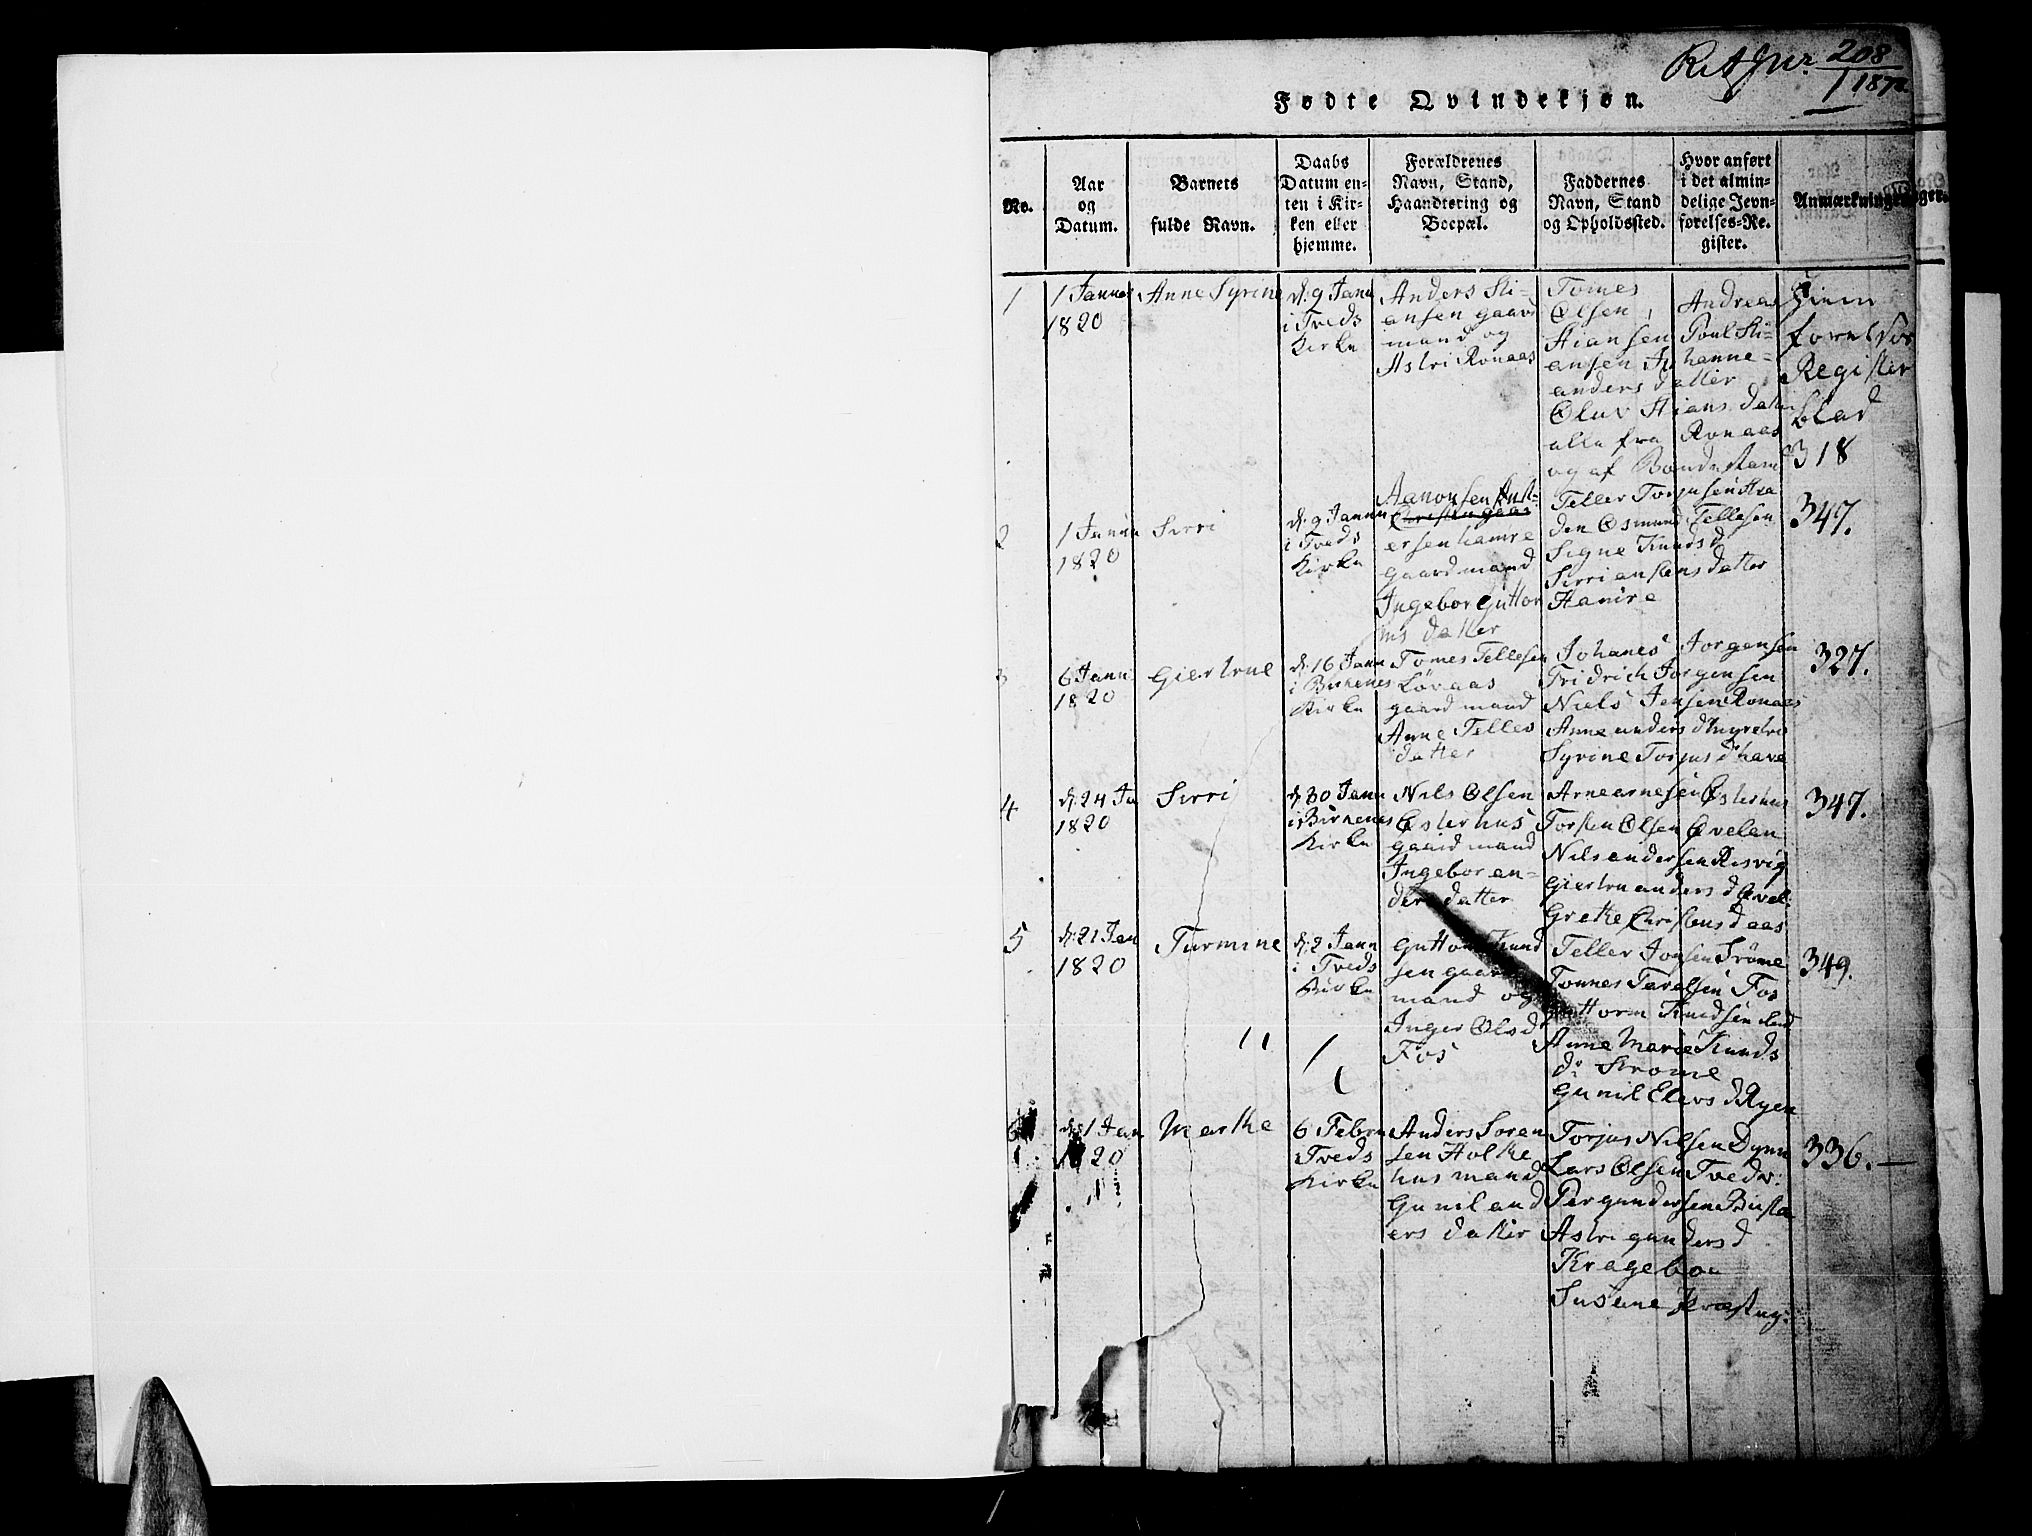 208
1 1872
Fødte Qvindekjøn.
No.
Aar
og
Datum.
Barnets
fulde Navn.
Daabs
Datum en-
ten i Kir-
ken eller
hjemme.
Forældrenes
Navn, Stand,
Haandtering og
Boepæl.
Faddernes
Navn, Stand
og Opholdssted.
Hvor anført
i det almin-
delige Jevn-
førelses-Re-
gister.
Anmærkninger.
1
1 Januar
1820
Anne Syrine
d. 9 Janu
i Tveds
Kirke
Anders Sti-
ansen gaard
mand og
Astri Ronaas
Tomes
Olsen, Andreas
Stiansen Poul Sti-
ansen Johanne
anders datter
Oluv Stians datter
alle fra Ronaas
og af Bondestam
Jevn
Register
blad
318
2
1 Janu
1820
Sirri
d. 9 Janu
i Tveds
Kirke
Aanon
ersen hamre
gaardmand
Ingebor Guttor
ms datter
Tellef
den Osmund Tellefsen
Signe Knuds d
Sirri
Hamre
347.
3
6 Janu
1820
Giertrue
d. 16 Janu
i Birkenes
Kirke
Tomes Tellefsen
Løvaas
gaardmand
Anne Tellevs
datter
Johanes Jorgensen
Fridrich Jorgensen
Niels Jensen Ronaas
Anne anders d
Syrine Torjus d have
327.
4
d. 24 Ja
1820
Sirri
d. 30 Janu
i Birkenes
Kirke
Nils Olsen
Østerhus
gaardmand
Ingebor an-
ders datter
Arne arnesen Østerhus
Torsten Olsen Øvelan
Nils andersen Risvig
Giertru anders d Øvel.
Grethe Christens d aas
347.
5
d. 21 Jan
1820
Turmine
d. 2 Janu
i Tveds
Kirke
Guttorm Knud
sen gaard
mand og
Inger Ols d
Fos
Tellef Jonsen Strøme
Tonnes Tarelsen Fos
Guttorm Knudsen
Anne Marie Knuds
d. Strome
Gunil Elevs d Ryen
349.
6
1 Jan
1820
Marthe
6 Febru
Tveds
Kirke
Anders Soren
sen Holthe
husmand
Gunil and
ers datter
Torjus Nilsen Dynn
Lars Olsen Tveder
Per gundersen Bustø
Astri gunders d
Krageboe
Susane
336.—